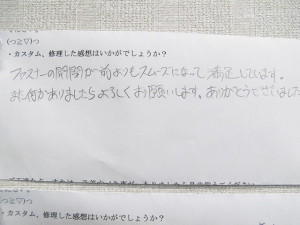 (つ≧▽)つ
・カスタム、修理した感想はいかがでしょうか？
ファスナーの開閉が前よりもスムーズになって満足しています。
また何かありましたらよろしくお願いします。ありがとうございました
・カスタム、修理した感想はいかがでしょうか？